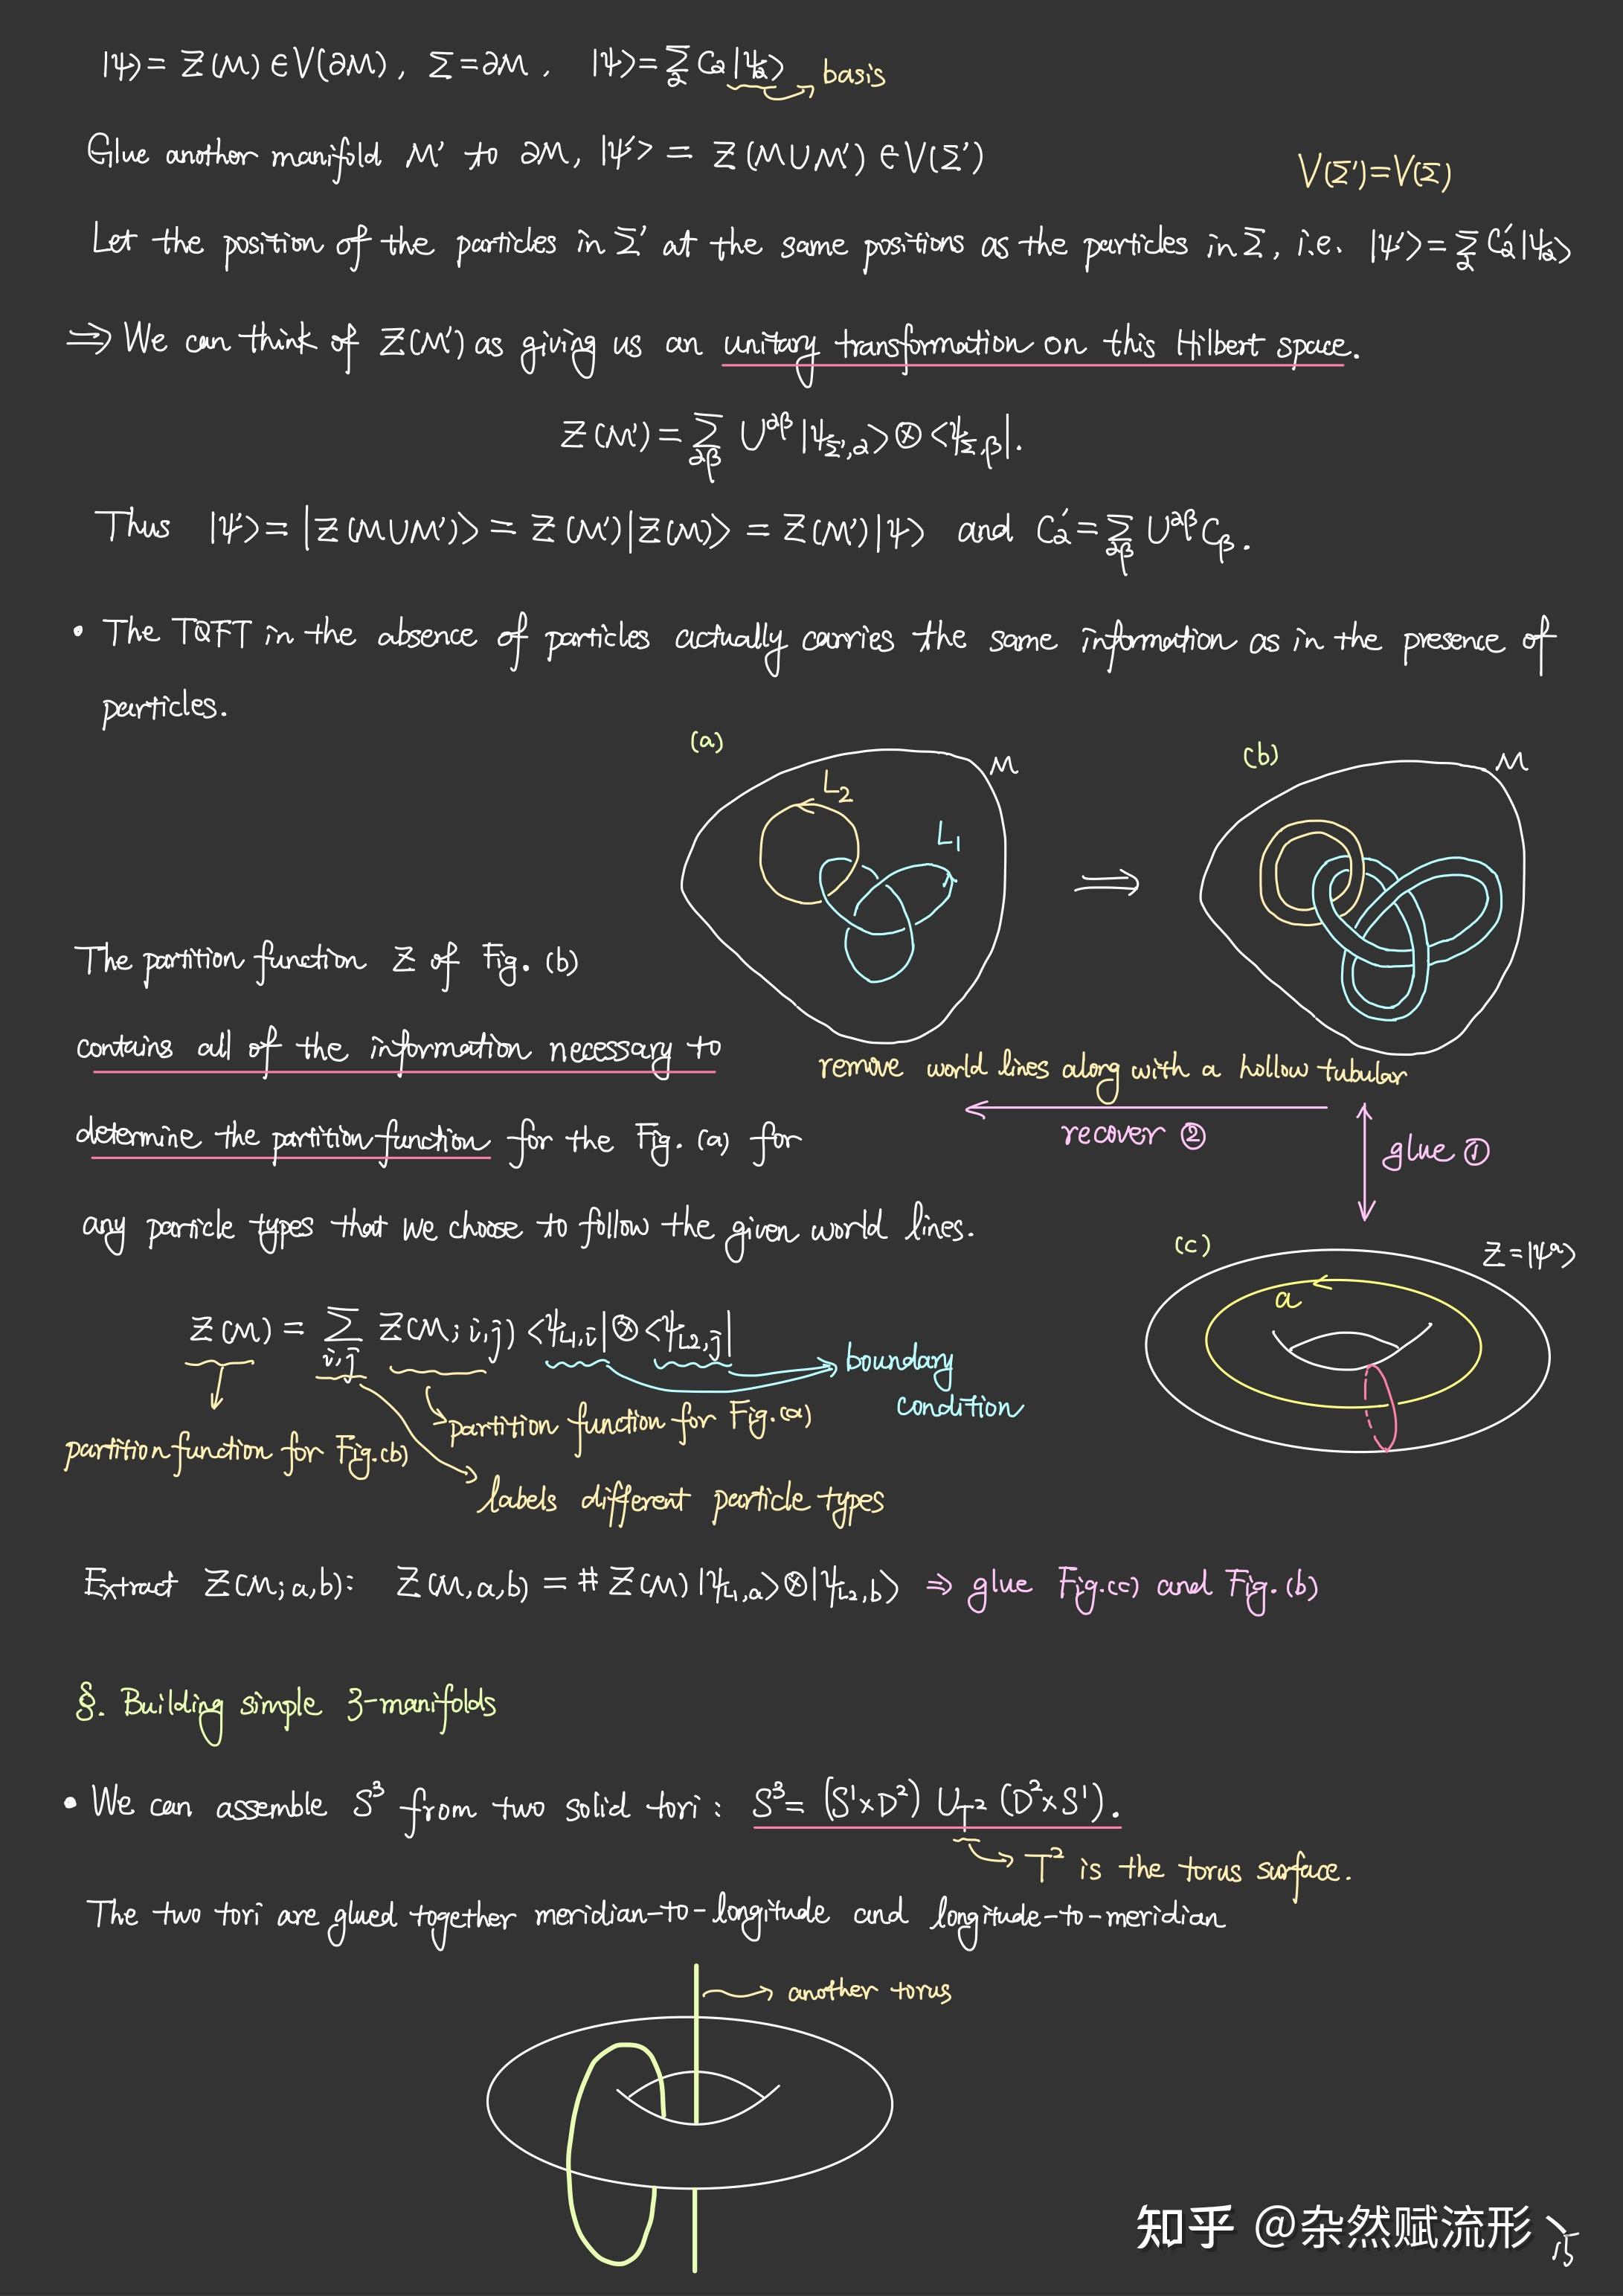 |ψ⟩ = Z(M) ∈ V(∂M), Σ = ∂M, |ψ⟩ = Σ_α C_α |ψ_α⟩ basis
Glue another manifold M' to ∂M, |ψ'⟩ = Z(M∪M') ∈ V(Σ')
V(Σ') = V(Σ)
Let the position of the particles in Σ' at the same positions as the particles in Σ, i.e. |ψ'⟩ = Σ_α C'_α |ψ_α⟩
⇒ We can think of Z(M') as giving us an unitary transformation on this Hilbert space.
Z(M') = Σ_{αβ} U^{αβ} |ψ_{Σ',α}⟩ ⊗ ⟨ψ_{Σ,β}|.
Thus |ψ'⟩ = |Z(M∪M')⟩ = Z(M')|Z(M)⟩ = Z(M')|ψ⟩ and C'_α = Σ_{αβ} U^{αβ} C_β.
• The TQFT in the absence of particles actually carries the same information as in the presence of
particles.
(a) M L₂ L₁
⇒
(b) M
The partition function Z of Fig. (b)
contains all of the information necessary to
determine the partition function for the Fig. (a) for
any particle types that we choose to follow the given world lines.
remove world lines along with a hollow tubular
recover ②
glue ①
(c) Z = |ψᵃ⟩
a
Z(M) = Σ_{i,j} Z(M; i,j) ⟨ψ_{L1,i}| ⊗ ⟨ψ_{L2,j}|
boundary
condition
partition function for Fig.(a)
partition function for Fig.(b)
labels different particle types
Extract Z(M; a,b): Z(M,a,b) = # Z(M) |ψ_{L1,a}⟩ ⊗ |ψ_{L2,b}⟩ ⇒ glue Fig.(c) and Fig.(b)
§. Building simple 3-manifolds
• We can assemble S³ from two solid tori: S³ = (S¹×D²) ∪_{T²} (D²×S¹).
T² is the torus surface.
The two tori are glued together meridian-to-longitude and longitude-to-meridian
another torus
知乎 @杂然赋流形